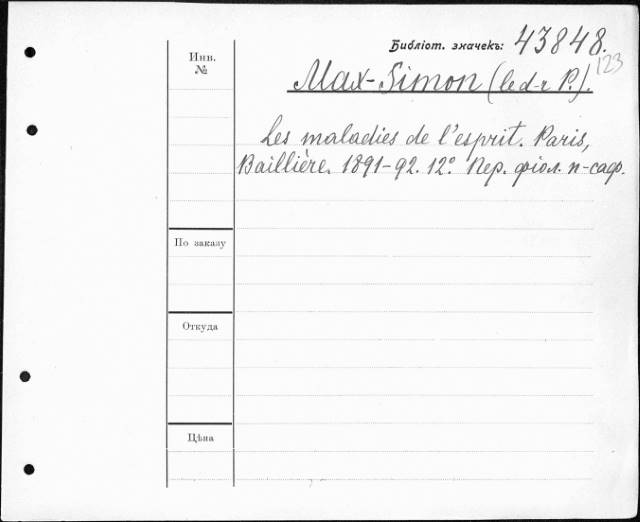 Библіот. значекъ: 43848.
123
Инв.
№
Max-Simon (le d-r P.).
Les maladies de l'esprit. Paris,
Baillière. 1891-92. 12° Пер. фіол. п-саф.
По заказу
Откуда
Цѣна